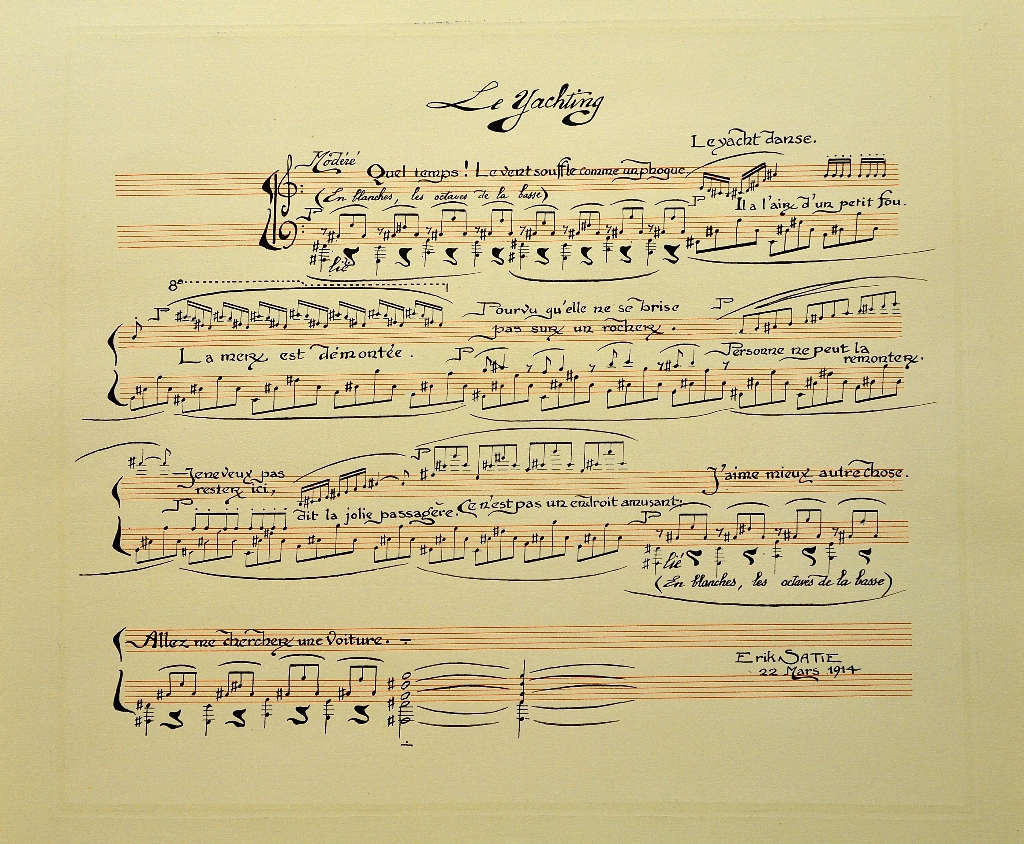 Le Yachting
Le yacht danse.
Modéré
Quel temps ! Le vent souffle comme un phoque
(En blanches, les octaves de la basse)
P
P
Il a l'air d'un petit fou.
lié
8ª
P
Pourvu qu'elle ne se brise
pas sur un rocher.
P
La mer est démontée.
P
Personne ne peut la
remonter.
Je ne veux pas
rester ici,
P
J'aime mieux autre chose.
P
dit la jolie passagère. Ce n'est pas un endroit amusant:
P
lié
(En blanches, les octaves de la basse)
Allez me chercher une voiture.
Erik SATIE
22 Mars 1914